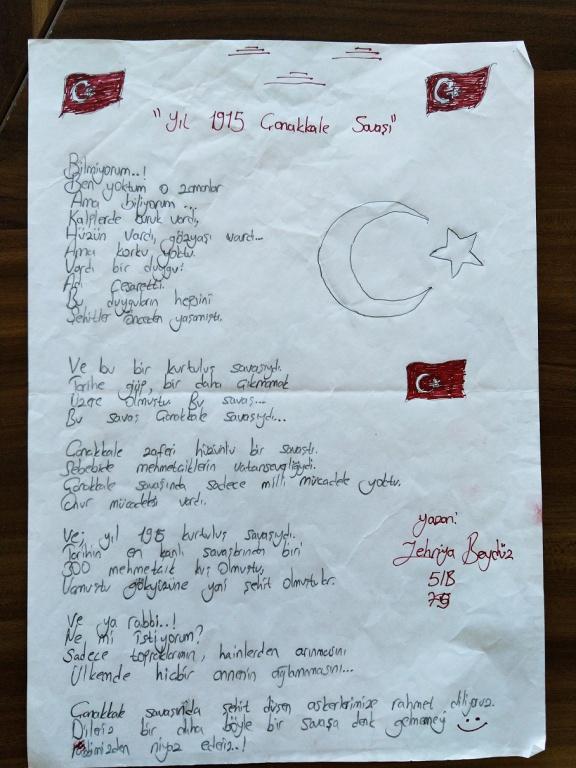 "Yıl 1915 Çanakkale Savaşı"
Bilmiyorum..!
Ben yoktum o zamanlar
Ama biliyorum...
Kalplerde buruk vardı,
Hüzün vardı, gözyaşı vardı...
Ama korku yoktu.
Vardı bir duygu:
Adı Cesaretti.
Bu duyguların hepsini
Şehitler önceden yaşamıştı.
Ve bu bir kurtuluş savaşıydı.
Tarihe girip, bir daha çıkmamak
Üzere olmuştu. Bu savaş...
Bu savaş Çanakkale savaşıydı...
Çanakkale zaferi hüzünlü bir savaştı.
Sebebide mehmetciklerin vatanseverliğiydi.
Çanakkale savaşında sadece milli mücadele yoktu.
Onur mücadelesi vardı.
Ve; yıl 1915 kurtuluş savaşıydı.
Tarihin en kanlı savaşlarından biri
300 mehmetcik kuş olmuştu,
Uçmuştu gökyüzüne yani şehit olmuştular.
Ve ya rabbi..!
Ne mi istiyorum?
Sadece topraklarımın, hainlerden arınmasını
Ülkemde hiçbir annenin ağlanmamasını...
Çanakkale savaşında şehit düşen askerlerimize rahmet diliyoruz.
Dileriz bir daha böyle bir savaşa denk gelmemeyi
rabbimizden niyaz ederiz..!
Yazan:
Zehriya Beydüz
5/B